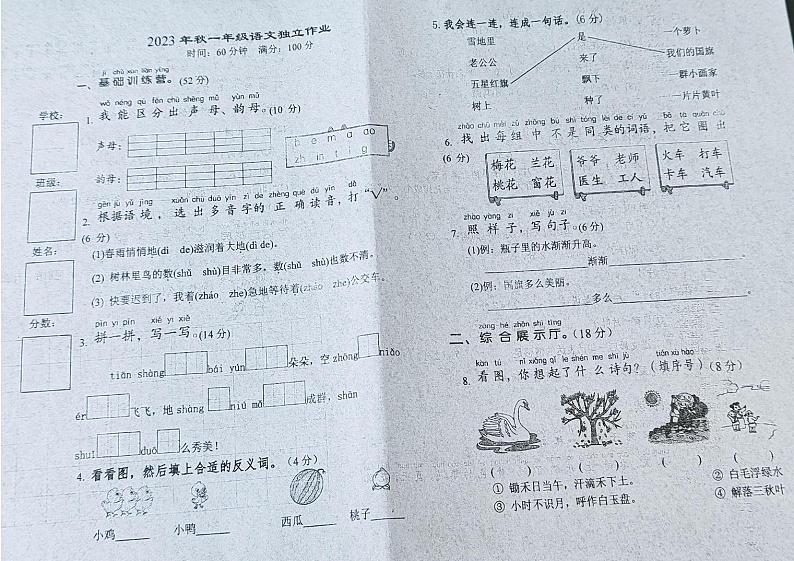 2023年秋一年级语文独立作业
时间：60分钟 满分：100分
jī chǔ xùn liàn yíng
一、基础训练营。（52分）
学校：
wǒ néng qū fēn chū shēng mǔ yùn mǔ
1. 我能区分出声母、韵母。（10分）
声母：
b e m a ao
zh in t i g
韵母：
班级：
gēn jù yǔ jìng xuǎn chū duō yīn zì de zhèng què dú yīn dǎ
2. 根据语境，选出多音字的正确读音，打“√”。
（6分）
姓名：
(1)春雨悄悄地(dì de)滋润着大地(dì de)。
(2) 树林里鸟的数(shǔ shù)目非常多，数(shǔ shù)也数不清。
(3) 快要迟到了，我着(zháo zhe)急地等待着(zháo zhe)公交车。
分数：
pīn yī pīn xiě yī xiě
3. 拼一拼，写一写。（14分）
tiān shàng bái yún 朵朵，空 zhōng niǎo
ér 飞飞，地 shàng niú mǎ 成群，shān
shuǐ duō 么秀美！
4. 看看图，然后填上合适的反义词。（4分）
小鸡 小鸭 西瓜 桃子
5. 我会连一连，连成一句话。（6分）
雪地里 是 一个萝卜
老公公 来了 我们的国旗
五星红旗 飘下 一群小画家
树上 种了 一片片黄叶
zhǎo chū měi zǔ zhōng bú shì tóng lèi de cí yǔ bǎ tā quān chū
6. 找出每组中不是同类的词语，把它圈出
（6分）
梅花 兰花 爷爷 老师 火车 打车
桃花 窗花 医生 工人 卡车 汽车
zhào yàng zi xiě jù zi
7. 照样子，写句子。（6分）
(1)例：瓶子里的水渐渐升高。
渐渐
(2)例：国旗多么美丽。
多么
zōng hé zhǎn shì tīng
二、综合展示厅。（18分）
kàn tú nǐ xiǎng qǐ le shén me shī jù tián xù hào
8. 看图，你想起了什么诗句？（填序号）（8分）
（ ） （ ） （ ） （ ）
① 锄禾日当午，汗滴禾下土。 ② 白毛浮绿水
③ 小时不识月，呼作白玉盘。 ④ 解落三秋叶